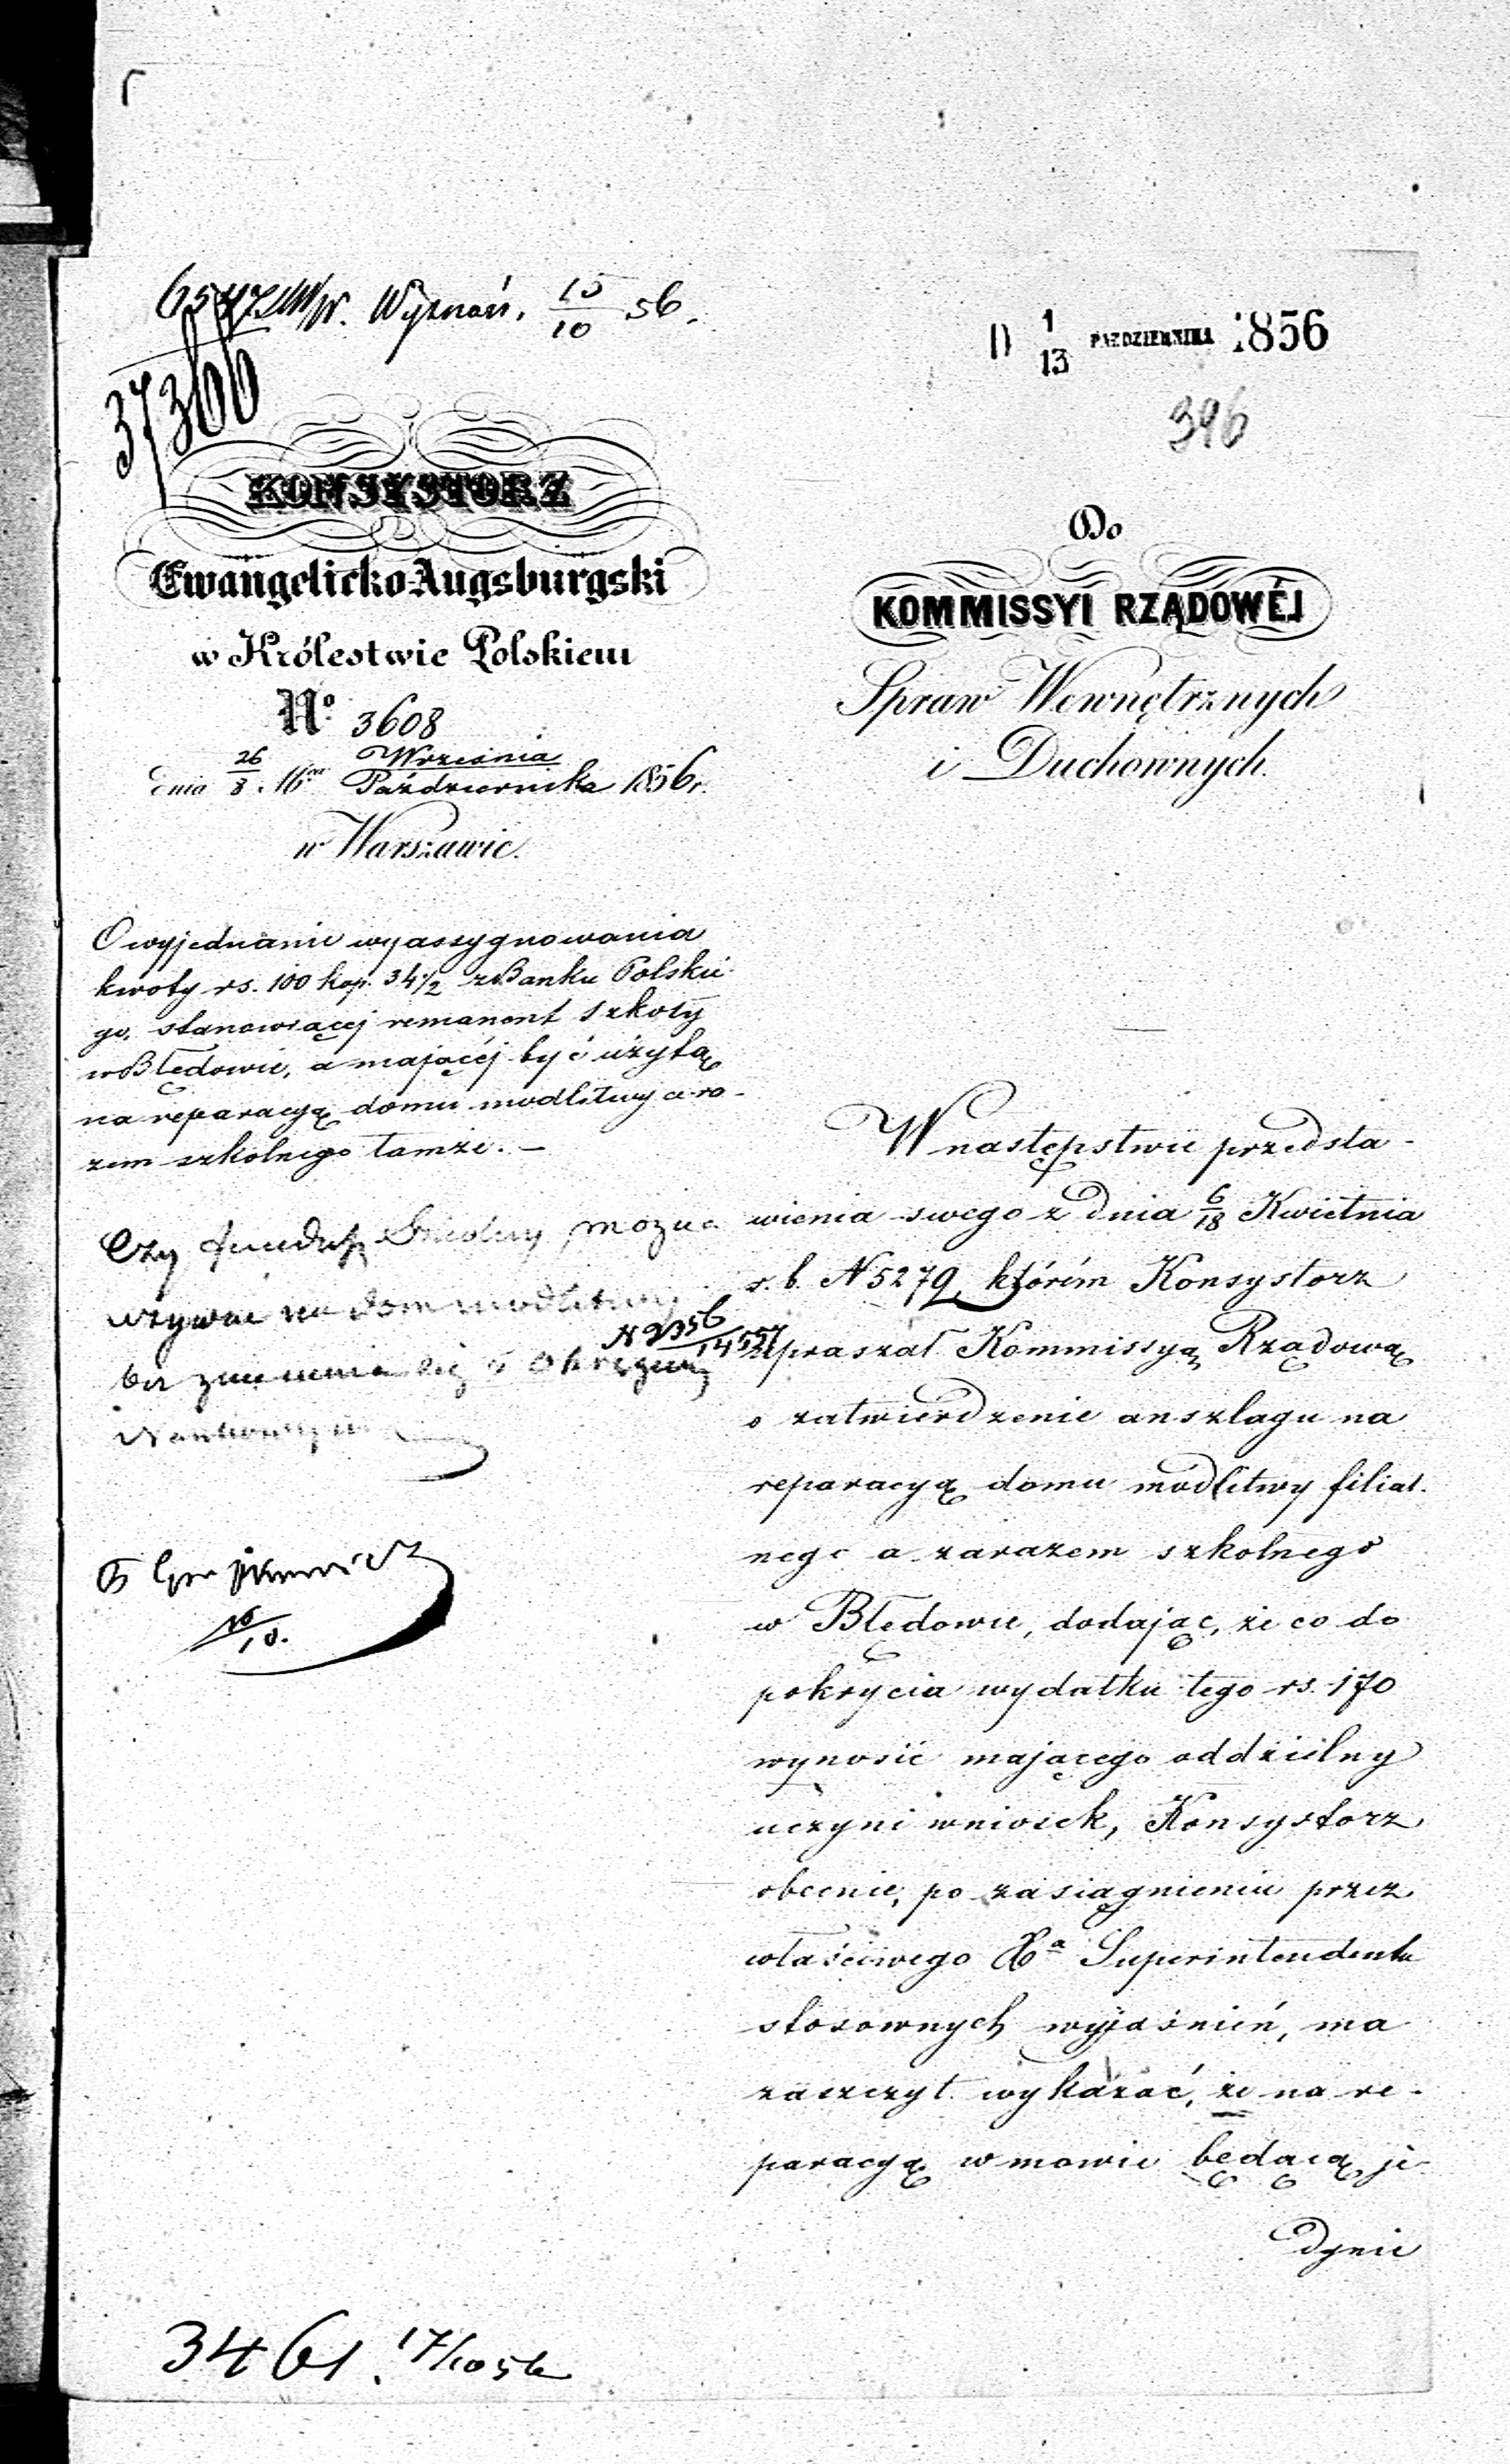 Wyznań. 15/10 56.
37366
D 1/13 PAZDZIERNIKA 1856
396
KONSYSTORZ
Ewangelicko-Augsburgski
w Królestwie Polskiem
No 3608
dnia 26/8 Września/Października 1856 r.
w Warszawie.
Do
KOMMISSYI RZĄDOWÉJ
Spraw Wewnętrznych
i Duchownych.
O wyjednanie wyassygnowania
kwoty rs. 100 kop. 34 1/2 z Banku Polskie-
go, stanowiącej remanent szkoły
w Błędowie, a mającéj być użytą
na reparacyą domu modlitwy a ra-
zem szkolnego tamże. –
Czy fundusz Szkolny można
używać na dom modlitwy
bez zniesienia się z Okręgiem
Naukowym
N 2356/14557
16/10.
W następstwie przedsta-
wienia swego z dnia 6/18 Kwietnia
r. b. N 5279, którém Konsystorz
upraszał Kommissyą Rządową
o zatwierdzenie anszlagu na
reparacyą domu modlitwy filial-
nego a zarazem szkolnego
w Błędowie, dodając, że co do
pokrycia wydatku tego rs. 170
wynosić mającego oddzielny
uczyni wniosek, Konsystorz
obecnie, po zasiągnieniu przez
właściwego Xa Superintendenta
stosownych wyjaśnień, ma
zaszczyt wykazać, że na re-
paracyą w mowie będącą je-
dynie
3461. 17/10 56